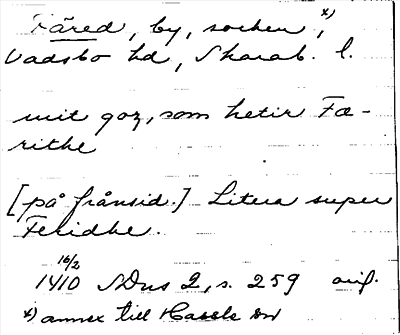 Fåred, by, socken x),
Vadsbo hd, Skarab. l.
mit goz, som hetir Fæ-
rithe
[på frånsid.] Litera super
Feridhe.
16/2
1410 SDns 2, s. 259 orig.
x) annex till Hassle sn